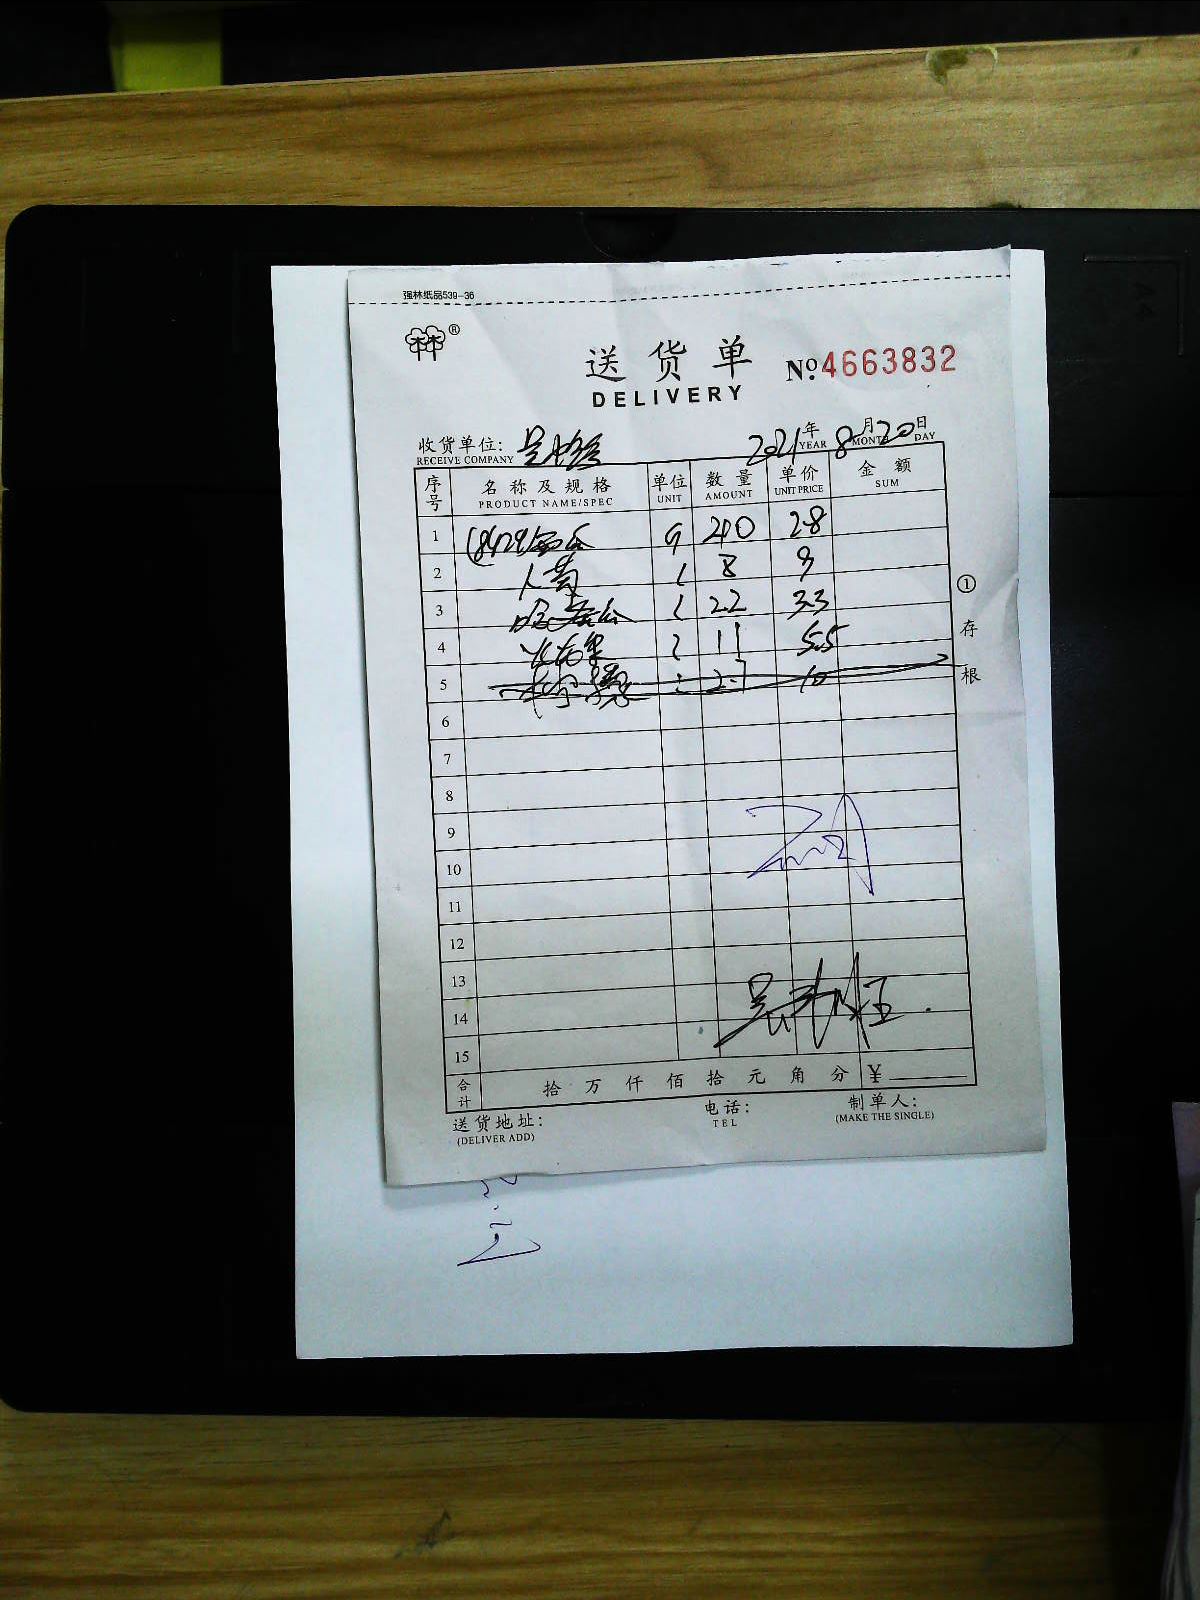 强林纸品539-36
®
送货单 No.4663832
DELIVERY
收货单位: 2021年 8月 20日
RECEIVE COMPANY YEAR MONTH DAY
序号 名称及规格 单位 数量 单价 金额
PRODUCT NAME/SPEC UNIT AMOUNT UNIT PRICE SUM
1 (8429) 210 2.8
2 8 9
3 22 3.3
4 火龙果 11 5.5
5 2.7 10
6
7
8
9
10
11
12
13
14
15
①存根
合计 拾 万 仟 佰 拾 元 角 分 ¥
送货地址: 电话: 制单人:
(DELIVER ADD) TEL (MAKE THE SINGLE)